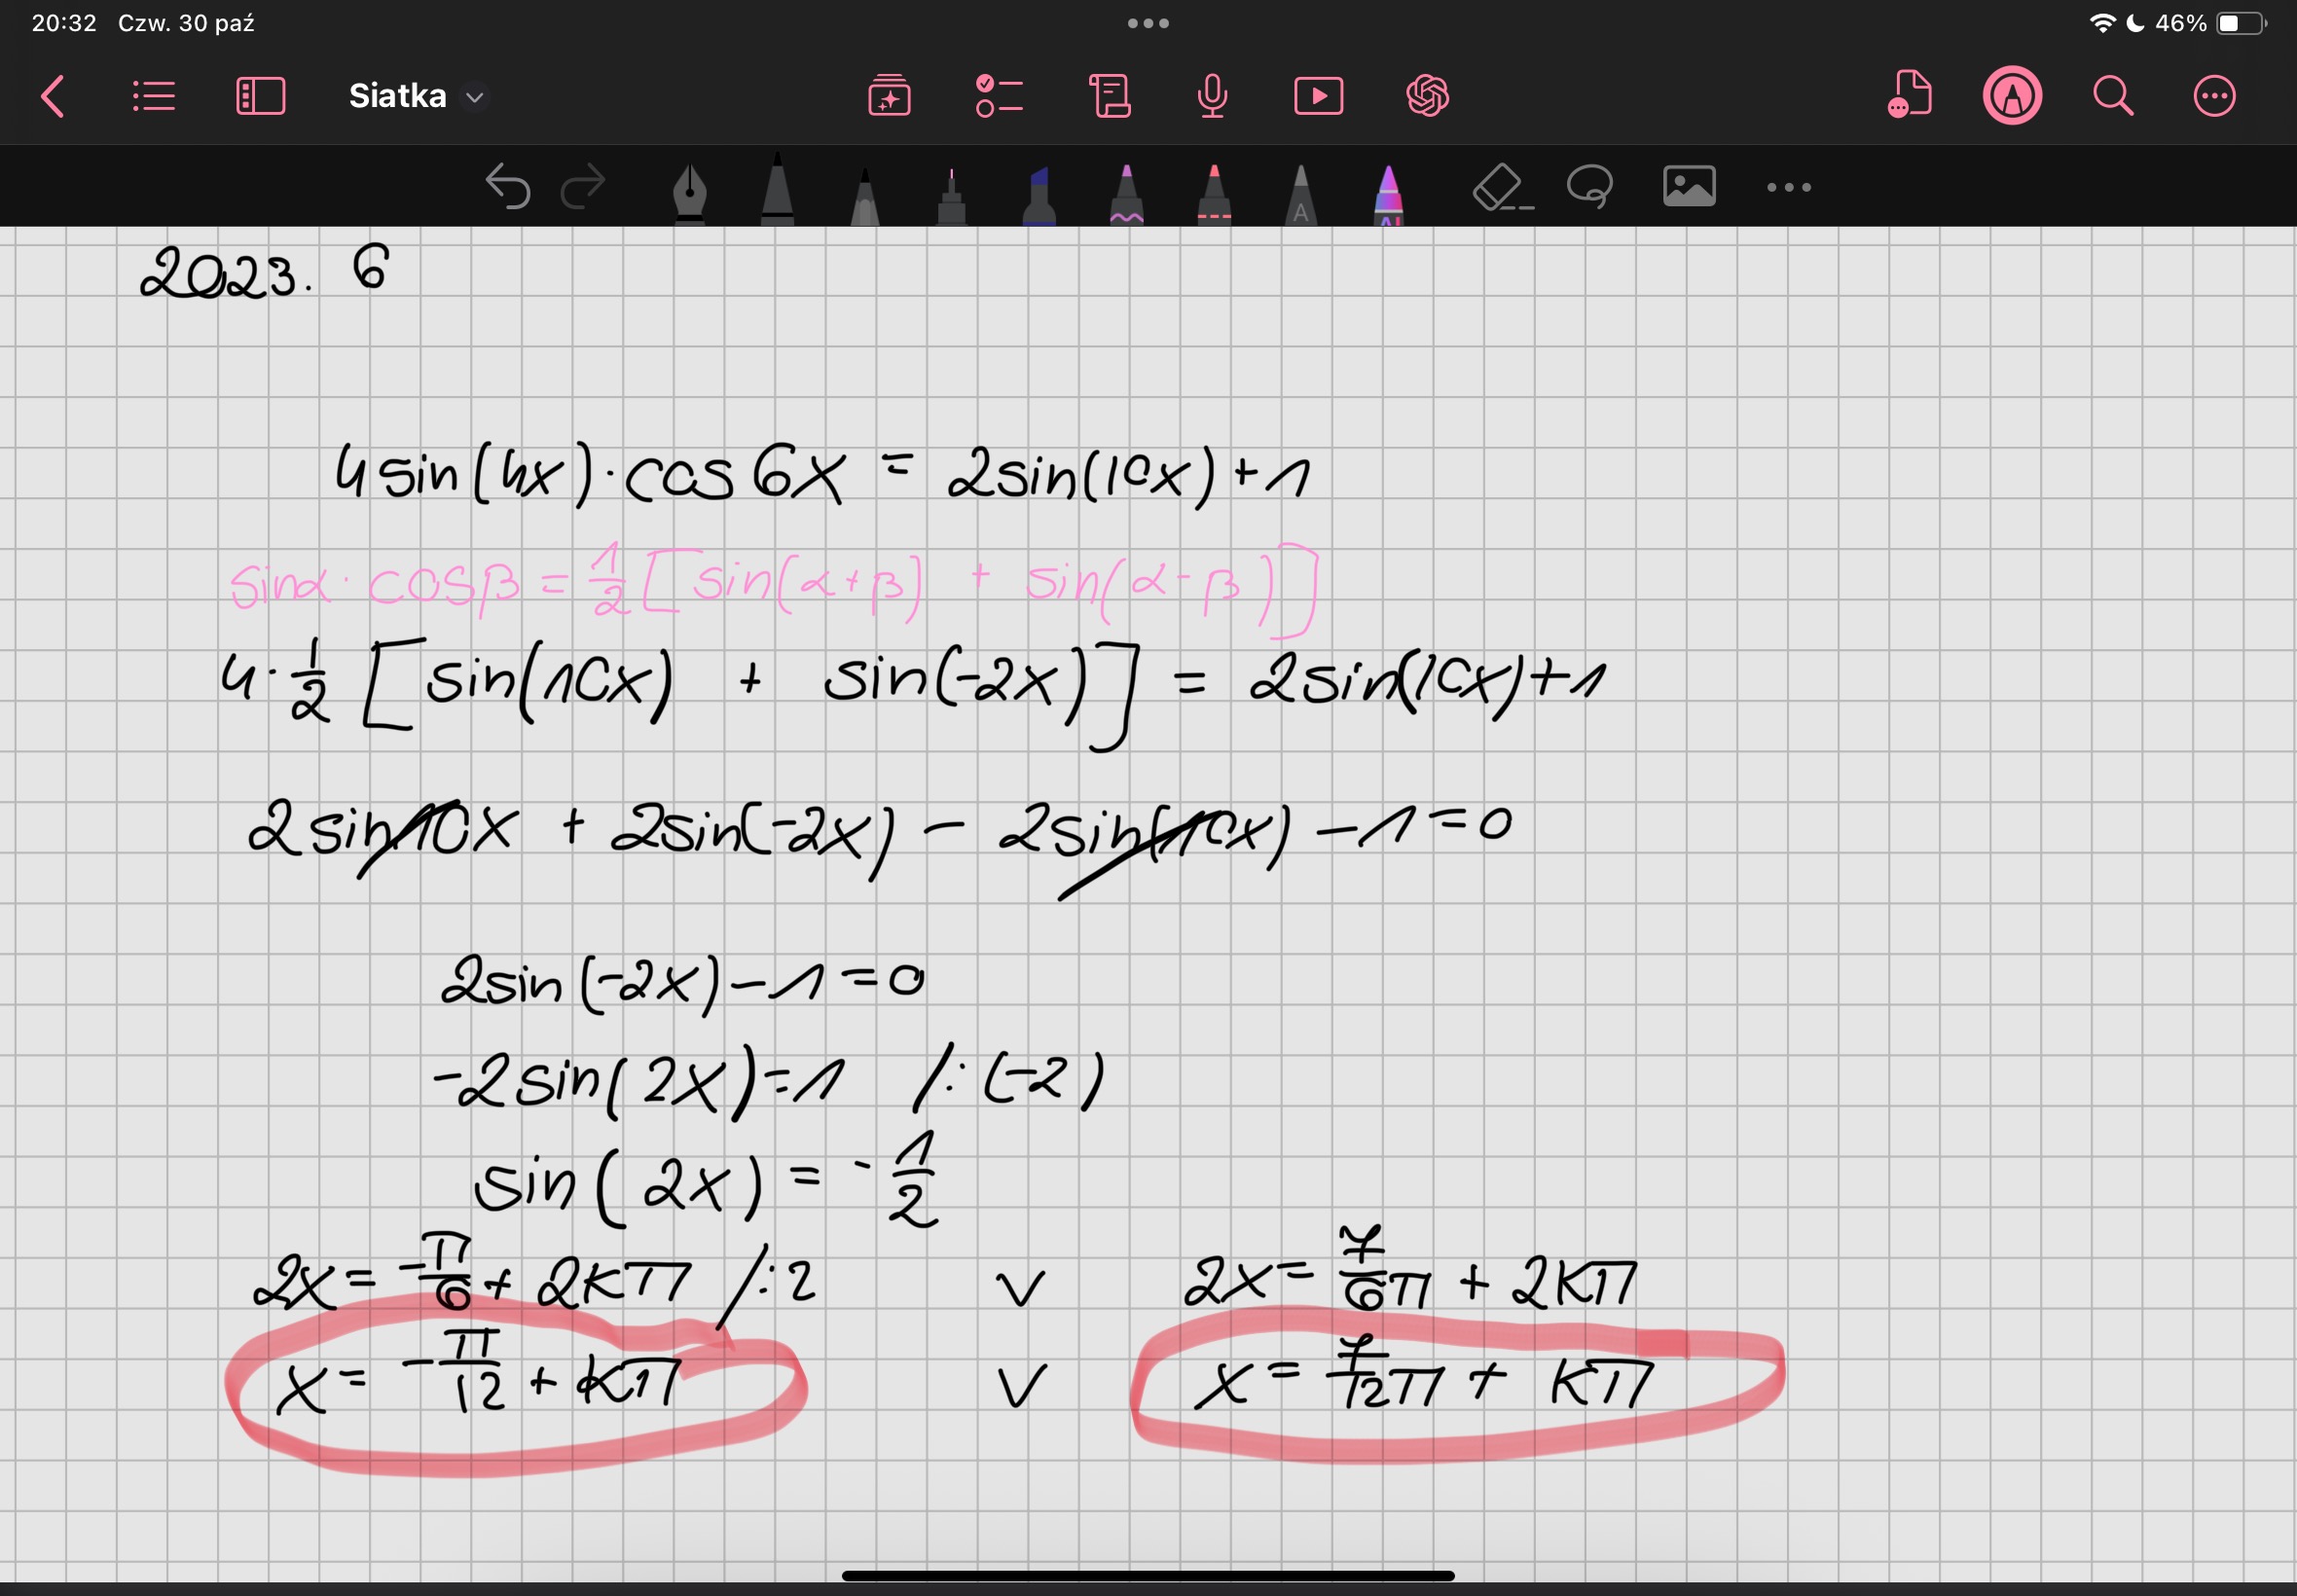 20:32 Czw. 30 paź 46%
Siatka
A
AI
2023. 6
4sin(4x)·cos6x = 2sin(10x)+1
sinα·cosβ = 1/2[sin(α+β) + sin(α-β)]
4·1/2[sin(10x) + sin(-2x)] = 2sin(10x)+1
2sin10x + 2sin(-2x) - 2sin(10x) -1=0
2sin(-2x)-1=0
-2sin(2x)=1 /:(-2)
sin(2x) = -1/2
2x = -π/6 + 2kπ /:2 v 2x = 7/6π + 2kπ
x = -π/12 + kπ v x = 7/12π + kπ